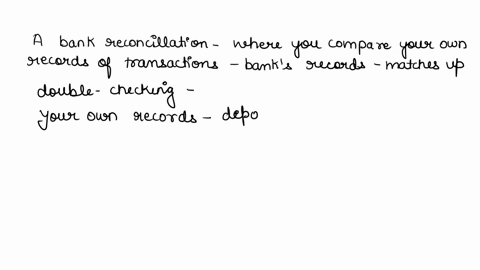 A bank reconcillation - where you compare your own
records of transactions - bank's records - matches up
double - checking -
your own records - depo